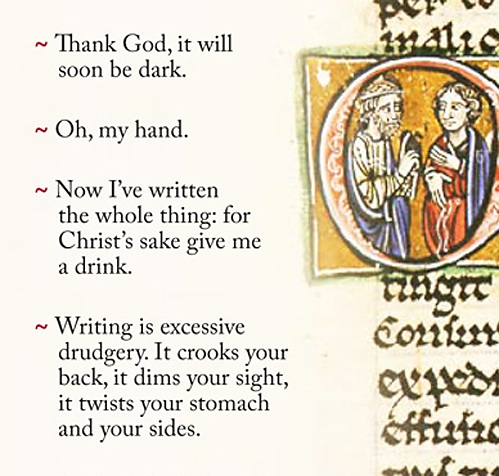 ~ Thank God, it will
soon be dark.
~ Oh, my hand.
~ Now I've written
the whole thing: for
Christ's sake give me
a drink.
~ Writing is excessive
drudgery. It crooks your
back, it dims your sight,
it twists your stomach
and your sides.